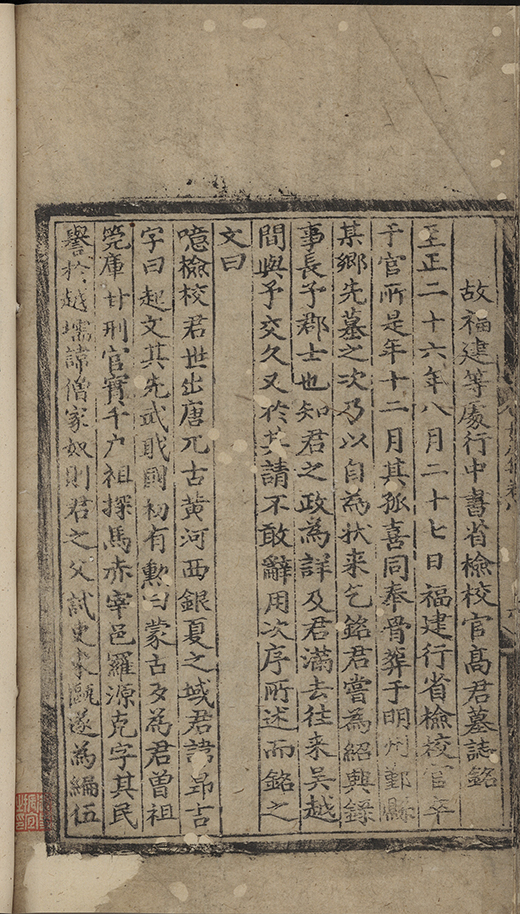 故福建等處行中書省檢校官高君墓誌銘
至正二十六年八月二十七日福建行省檢校官卒
于官所是年十二月其孤喜同奉骨葬于明州鄞縣
某鄉先墓之次乃以自為狀来乞銘君嘗為紹興錄
事長予郡士也知君之政為詳及君滿去往来吴越
間與予交久又於其請不敢辭用次序所述而銘之
文曰
噫檢校君世出唐兀古黄河西銀夏之域君諱昂吉
字曰起文其先武職國初有勲曰蒙古歹為君曽祖
筦庫甘刑官實千户祖探馬赤宰邑羅源克字其民
譽於越壖諱僧家奴則君之父試吏永遂為編伍